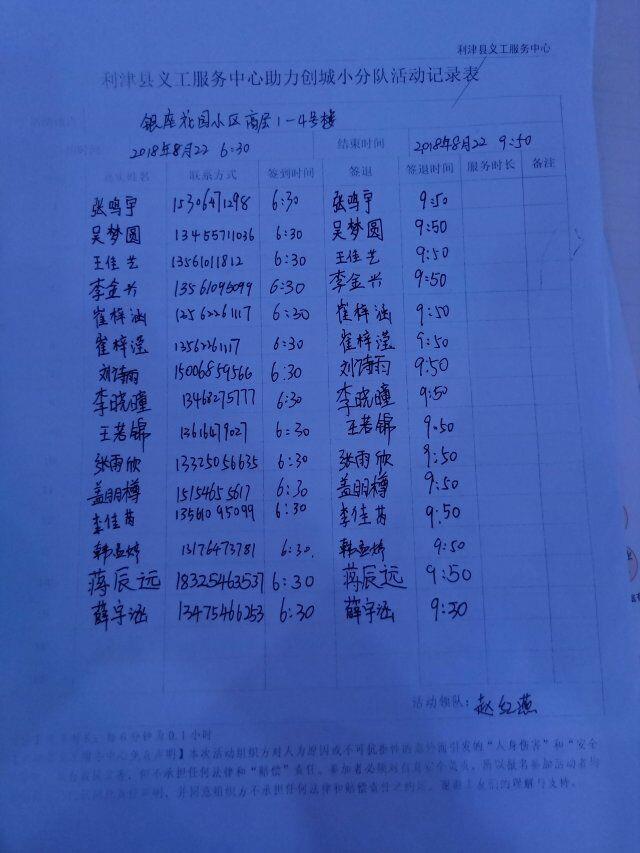 利津县义工服务中心
利津县义工服务中心助力创城小分队活动记录表
银座花园小区高层1-4号楼
2018年8月22 6:30 结束时间 2018年8月22 9:50
姓名 联系方式 签到时间 签退 签退时间 服务时长 备注
张鸣宇 15306471298 6:30 张鸣宇 9:50
吴梦圆 13455711036 6:30 吴梦圆 9:50
王佳艺 13561011812 6:30 王佳艺 9:50
李金兴 13561095099 6:30 李金兴 9:50
崔梓涵 13562261117 6:30 崔梓涵 9:50
崔梓滢 13562261117 6:30 崔梓滢 9:50
刘诗雨 15006859566 6:30 刘诗雨 9:50
李晓瞳 13468275777 6:30 李晓瞳 9:50
王若锦 13616479027 6:30 王若锦 9:50
张雨欣 13325056635 6:30 张雨欣 9:50
盖明樽 15154655617 6:30 盖明樽 9:50
李佳芮 13561095099 6:30 李佳芮 9:50
韩孟婷 13176473781 6:30. 韩孟婷 9:50
蒋辰远 18325463537 6:30 蒋辰远 9:50
薛宇涵 13475466253 6:30 薛宇涵 9:30
活动领队: 赵红燕
每6分钟为0.1小时
】本次活动组织方对人为原因或不可抗拒的意外而引发的“人身伤害”和“安全
但不承担任何法律和“赔偿”责任。参加者必须对自身安全负责。所以报名参加活动者均
并同意组织方不承担任何法律和赔偿责任之约定。谢谢义友们的理解与支持。